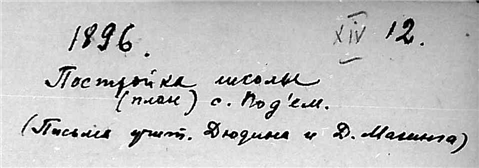 1896. XIV 12.
Постройка школы
(план) с. Под'ем.
(Письма учит. Дюдина и Д. Магинга)